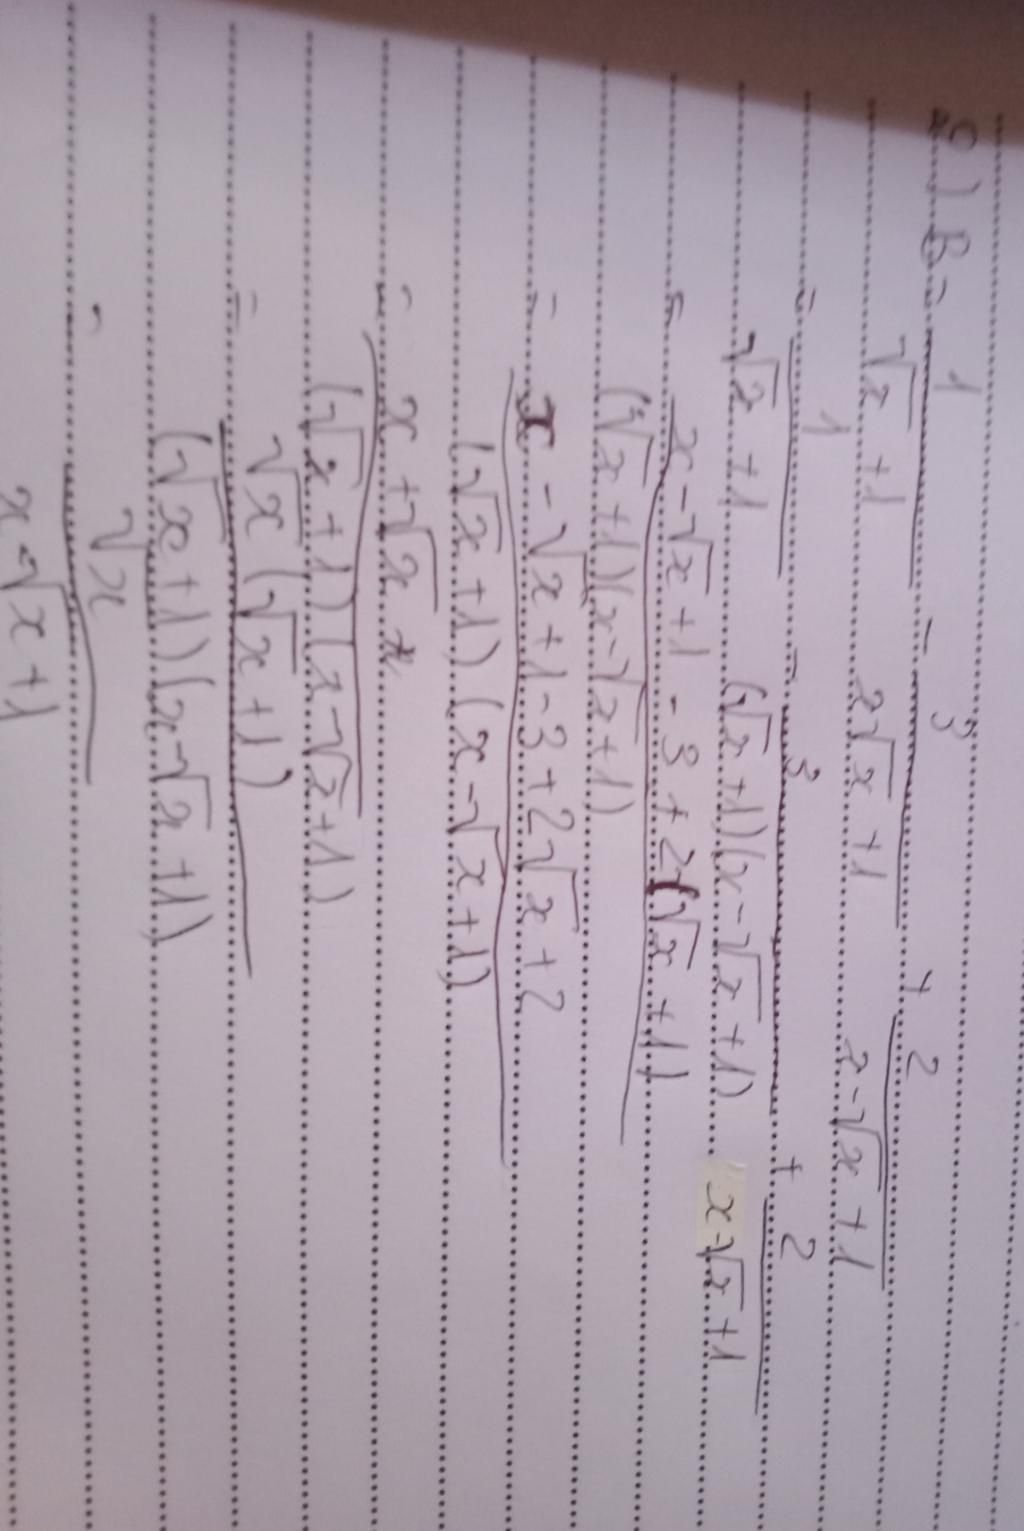 2) B = 1/(√x + 1) - 3/(x√x + 1) + 2/(x - √x + 1)
= 1/(√x + 1) - 3/((√x + 1)(x - √x + 1)) + 2/(x - √x + 1)
= (x - √x + 1 - 3 + 2(√x + 1))/((√x + 1)(x - √x + 1))
= (x - √x + 1 - 3 + 2√x + 2)/((√x + 1)(x - √x + 1))
= (x + √x)/((√x + 1)(x - √x + 1))
= (√x(√x + 1))/((√x + 1)(x - √x + 1))
= √x/(x - √x + 1)